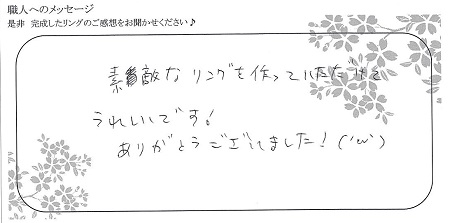 職人へのメッセージ
是非 完成したリングのご感想をお聞かせください♪
素敵なリングを作っていただけて
うれしいです!
ありがとうございました!('ω')